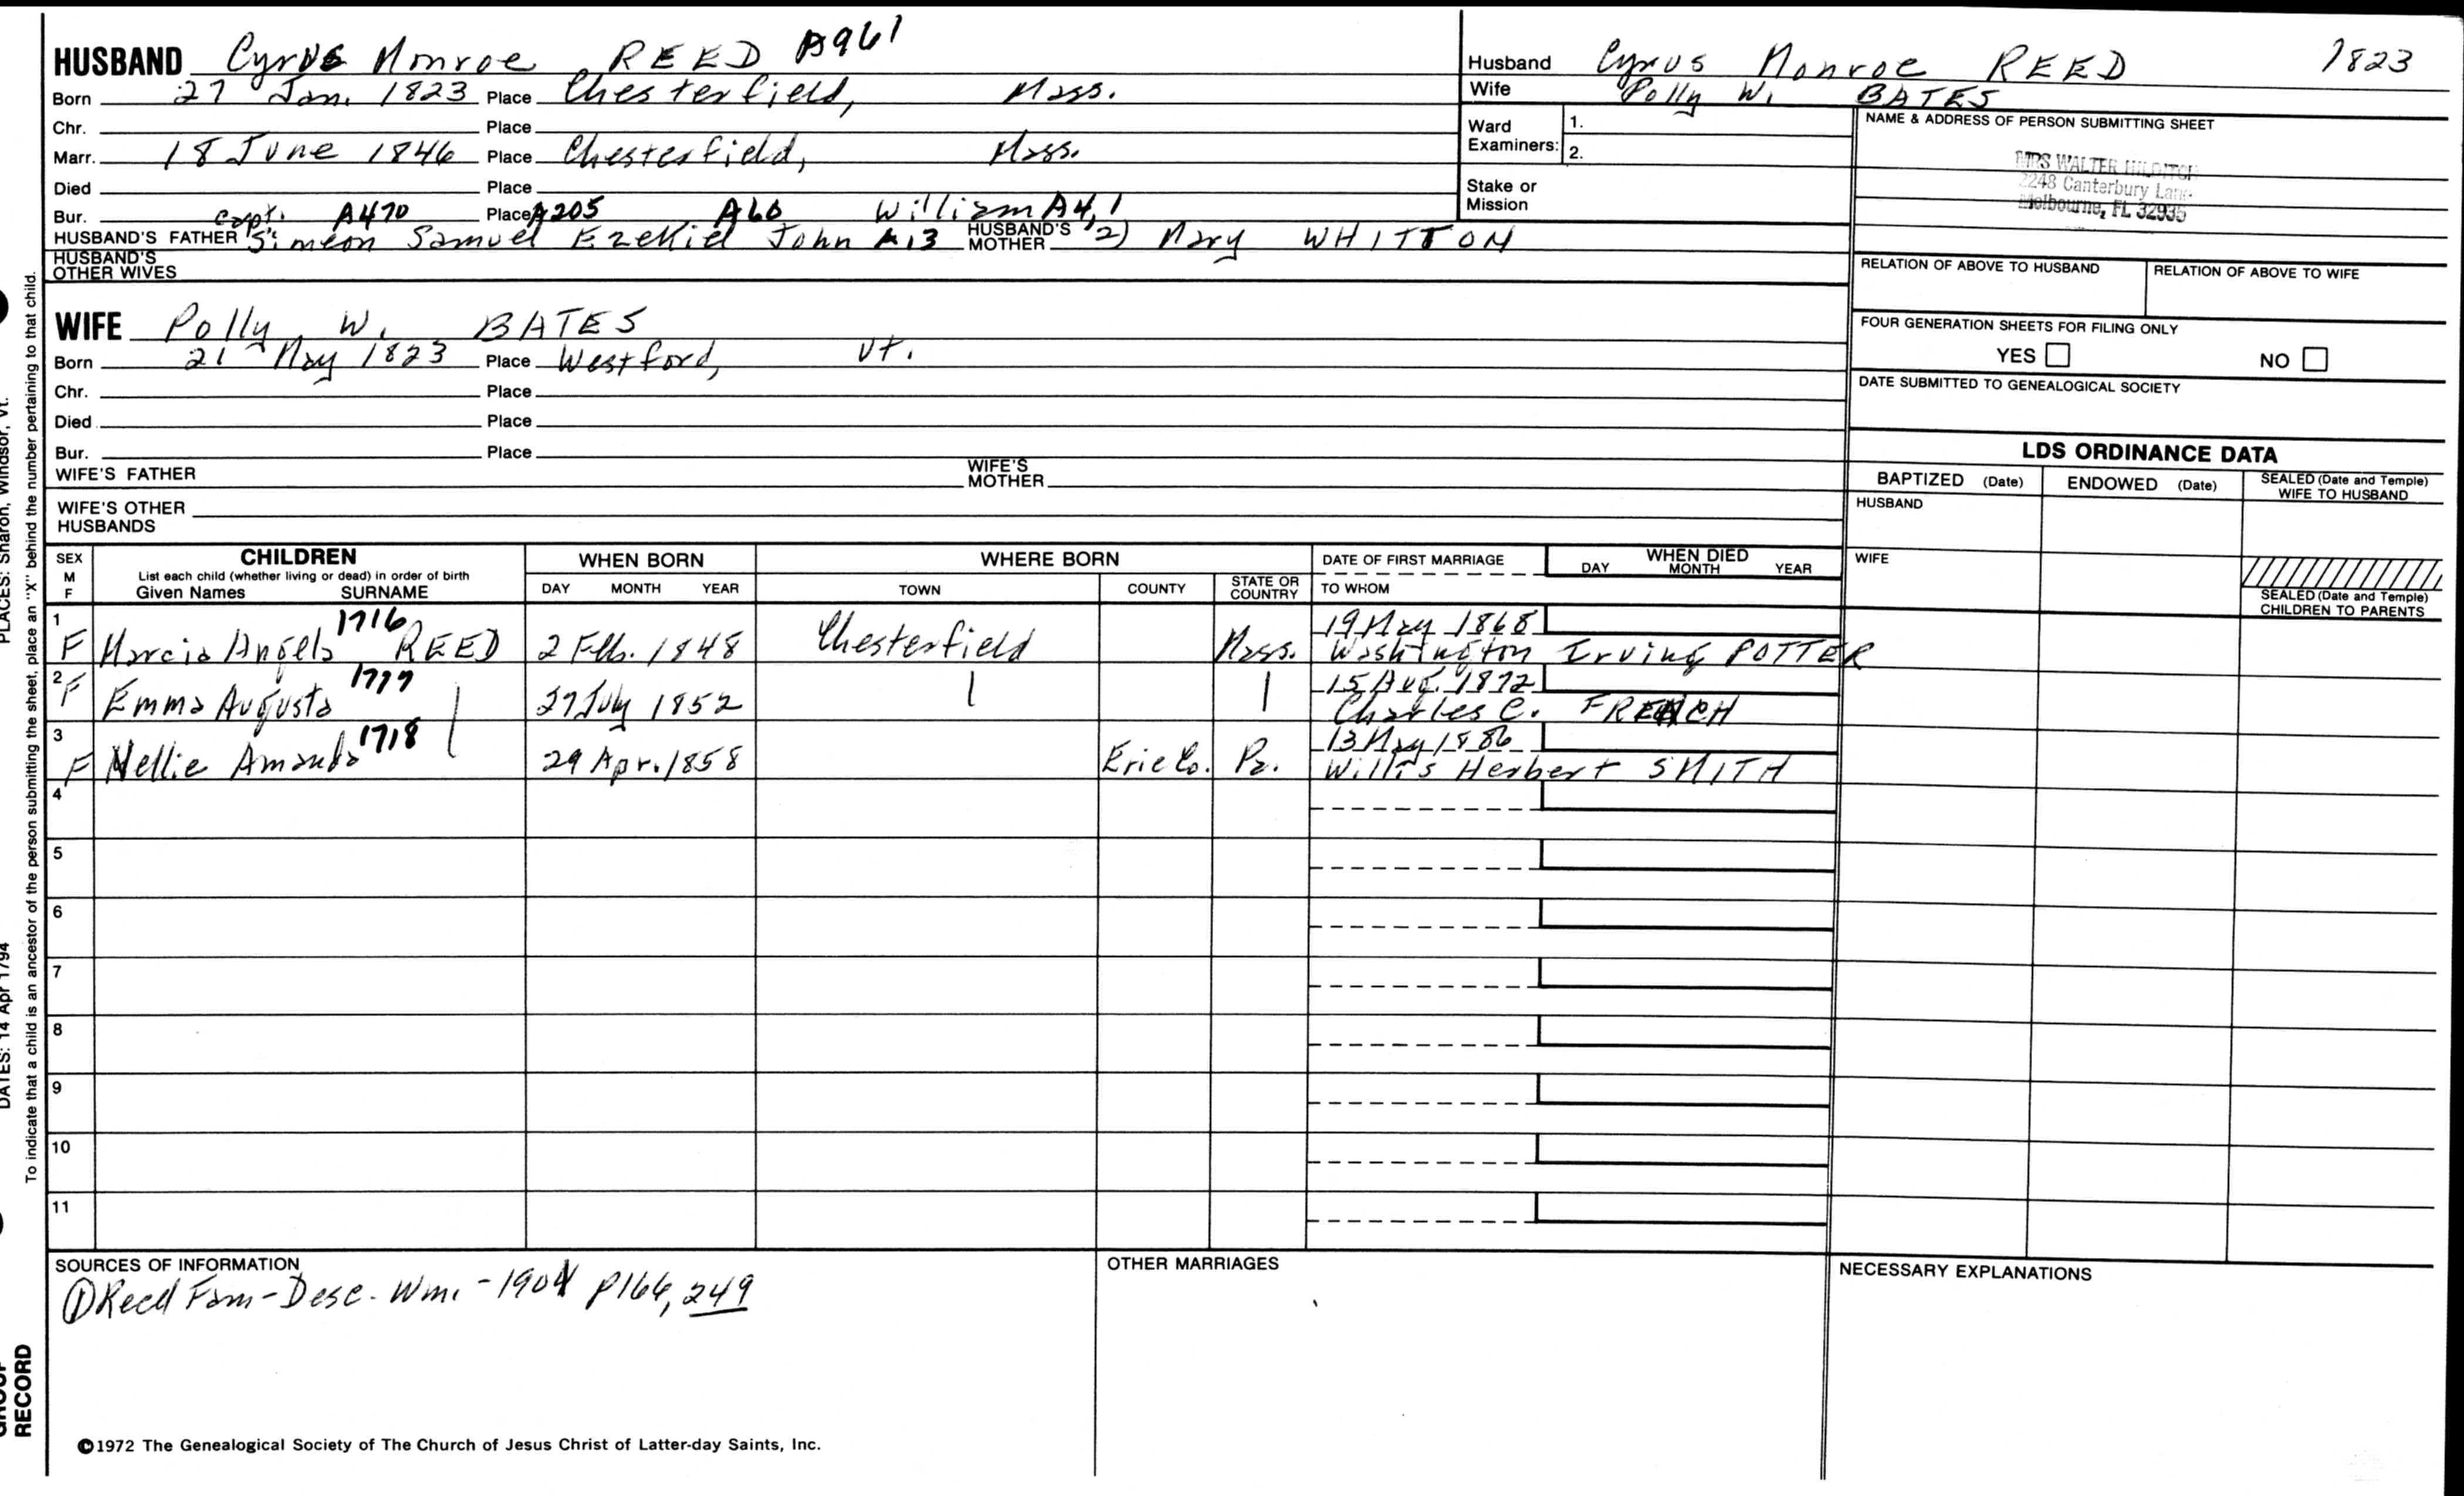 HUSBAND Cyrus Monroe REED A961
Born 27 Jan. 1823 Place Chesterfield, Mass.
Chr. Place
Marr. 18 June 1846 Place Chesterfield, Mass.
Died Place
Bur. Capt. A470 Place A205 A60 William A4,1
HUSBAND'S FATHER Simeon Samuel Ezekiel John A13 HUSBAND'S MOTHER (2) Mary WHITTON
HUSBAND'S OTHER WIVES
WIFE Polly W. BATES
Born 21 May 1823 Place Westford, Vt.
Chr. Place
Died Place
Bur. Place
WIFE'S FATHER WIFE'S MOTHER
WIFE'S OTHER HUSBANDS
Husband Cyrus Monroe REED 1823
Wife Polly W. BATES
Ward Examiners: 1.
2.
Stake or Mission
NAME & ADDRESS OF PERSON SUBMITTING SHEET
MRS WALTER
2248 Canterbury Lane
Melbourne, FL 32935
RELATION OF ABOVE TO HUSBAND RELATION OF ABOVE TO WIFE
FOUR GENERATION SHEETS FOR FILING ONLY
YES NO
DATE SUBMITTED TO GENEALOGICAL SOCIETY
LDS ORDINANCE DATA
BAPTIZED (Date) ENDOWED (Date) SEALED (Date and Temple) WIFE TO HUSBAND
HUSBAND
WIFE
SEALED (Date and Temple) CHILDREN TO PARENTS
SEX M F CHILDREN WHEN BORN WHERE BORN DATE OF FIRST MARRIAGE WHEN DIED
List each child (whether living or dead) in order of birth
Given Names SURNAME DAY MONTH YEAR TOWN COUNTY STATE OR COUNTRY TO WHOM DAY MONTH YEAR
1 1716 19 May 1868
F Marcia Angela REED 2 Feb. 1848 Chesterfield Mass. Washington Irving POTTER
2 1717 15 Aug. 1872
F Emma Augusta 27 July 1852 Charles C. FRENCH
3 1718 13 May 1886
F Nellie Amanda 29 Apr. 1858 Erie Co. Pa. Willis Herbert SMITH
4
5
6
7
8
9
10
11
SOURCES OF INFORMATION
① Reed Fam-Desc. Wm. -1901 p166, 249
OTHER MARRIAGES
NECESSARY EXPLANATIONS
©1972 The Genealogical Society of The Church of Jesus Christ of Latter-day Saints, Inc.
To indicate that a child is an ancestor of the person submitting the sheet, place an "X" behind the number pertaining to that child.
PLACES: Sharon, Windsor, Vt.
DATES: 14 Apr 1794
GROUP
RECORD